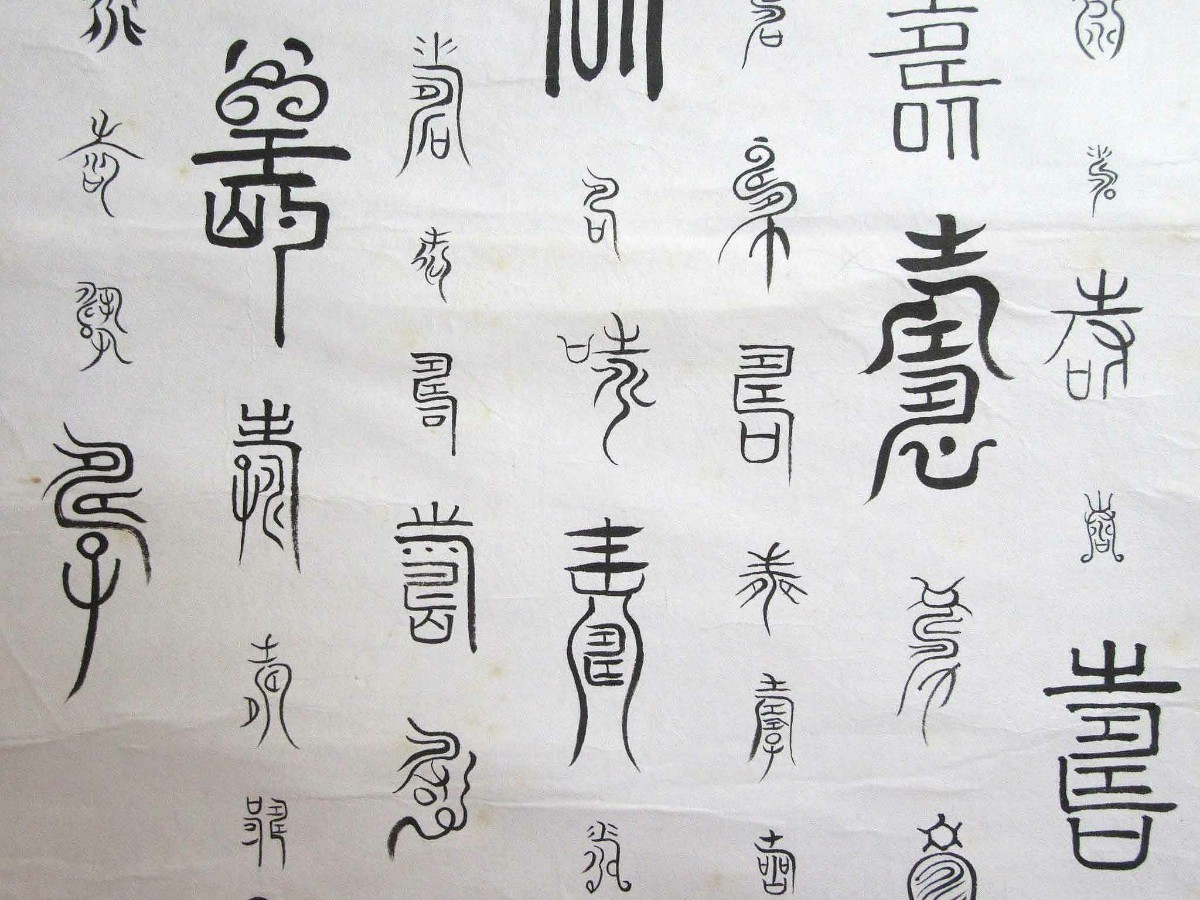 壽壽壽壽壽
壽壽壽壽
壽壽壽壽壽壽
壽壽壽壽壽
壽壽壽壽壽
壽壽壽壽
壽壽壽壽